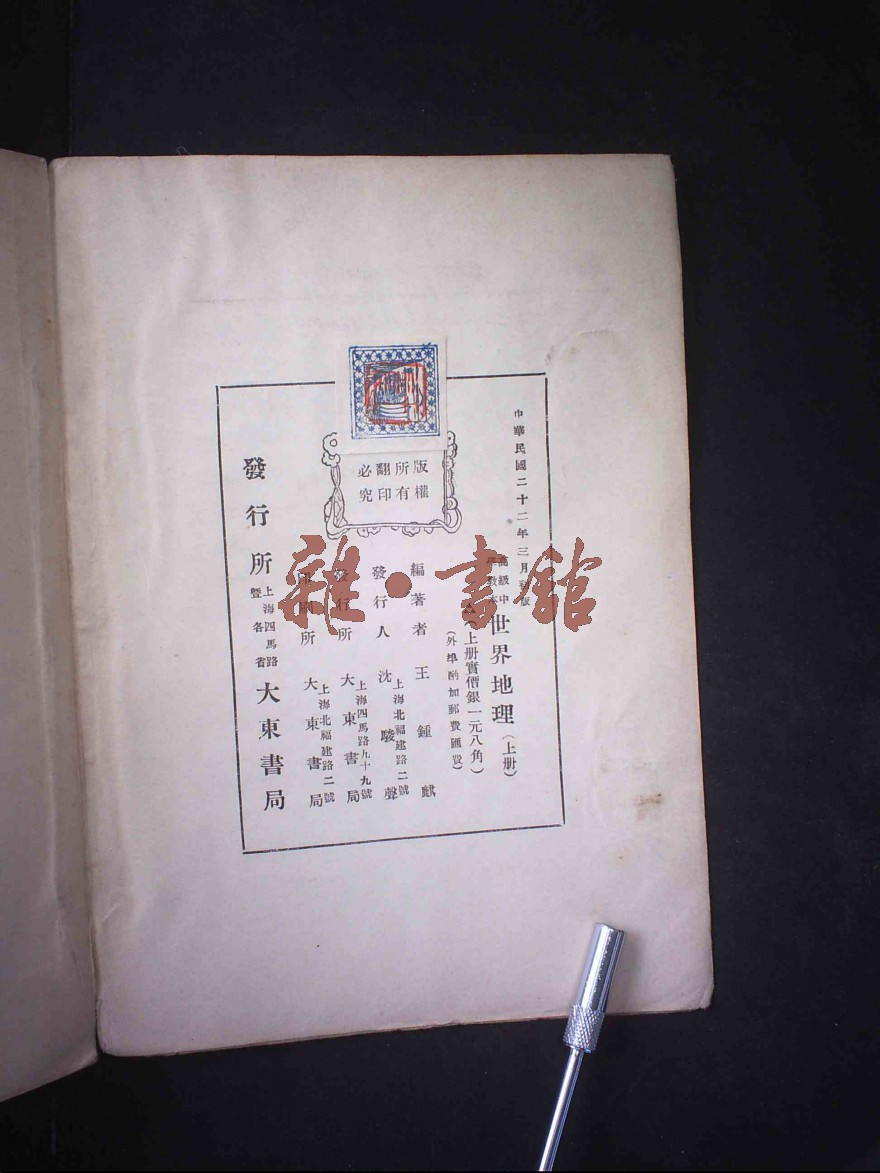 中華民國二十二年三月初版
高級中
學教本
世界地理(上册)
(上册實價銀一元八角)
(外埠酌加郵費匯費)
版權
所有
翻印
必究
編著者 王鍾麒
發行人 沈駿聲
上海北福建路二號
發行所 大東書局
上海四馬路九十九號
印刷所 大東書局
上海北福建路二號
發行所
上海四馬路
暨各省
大東書局
雜·書館